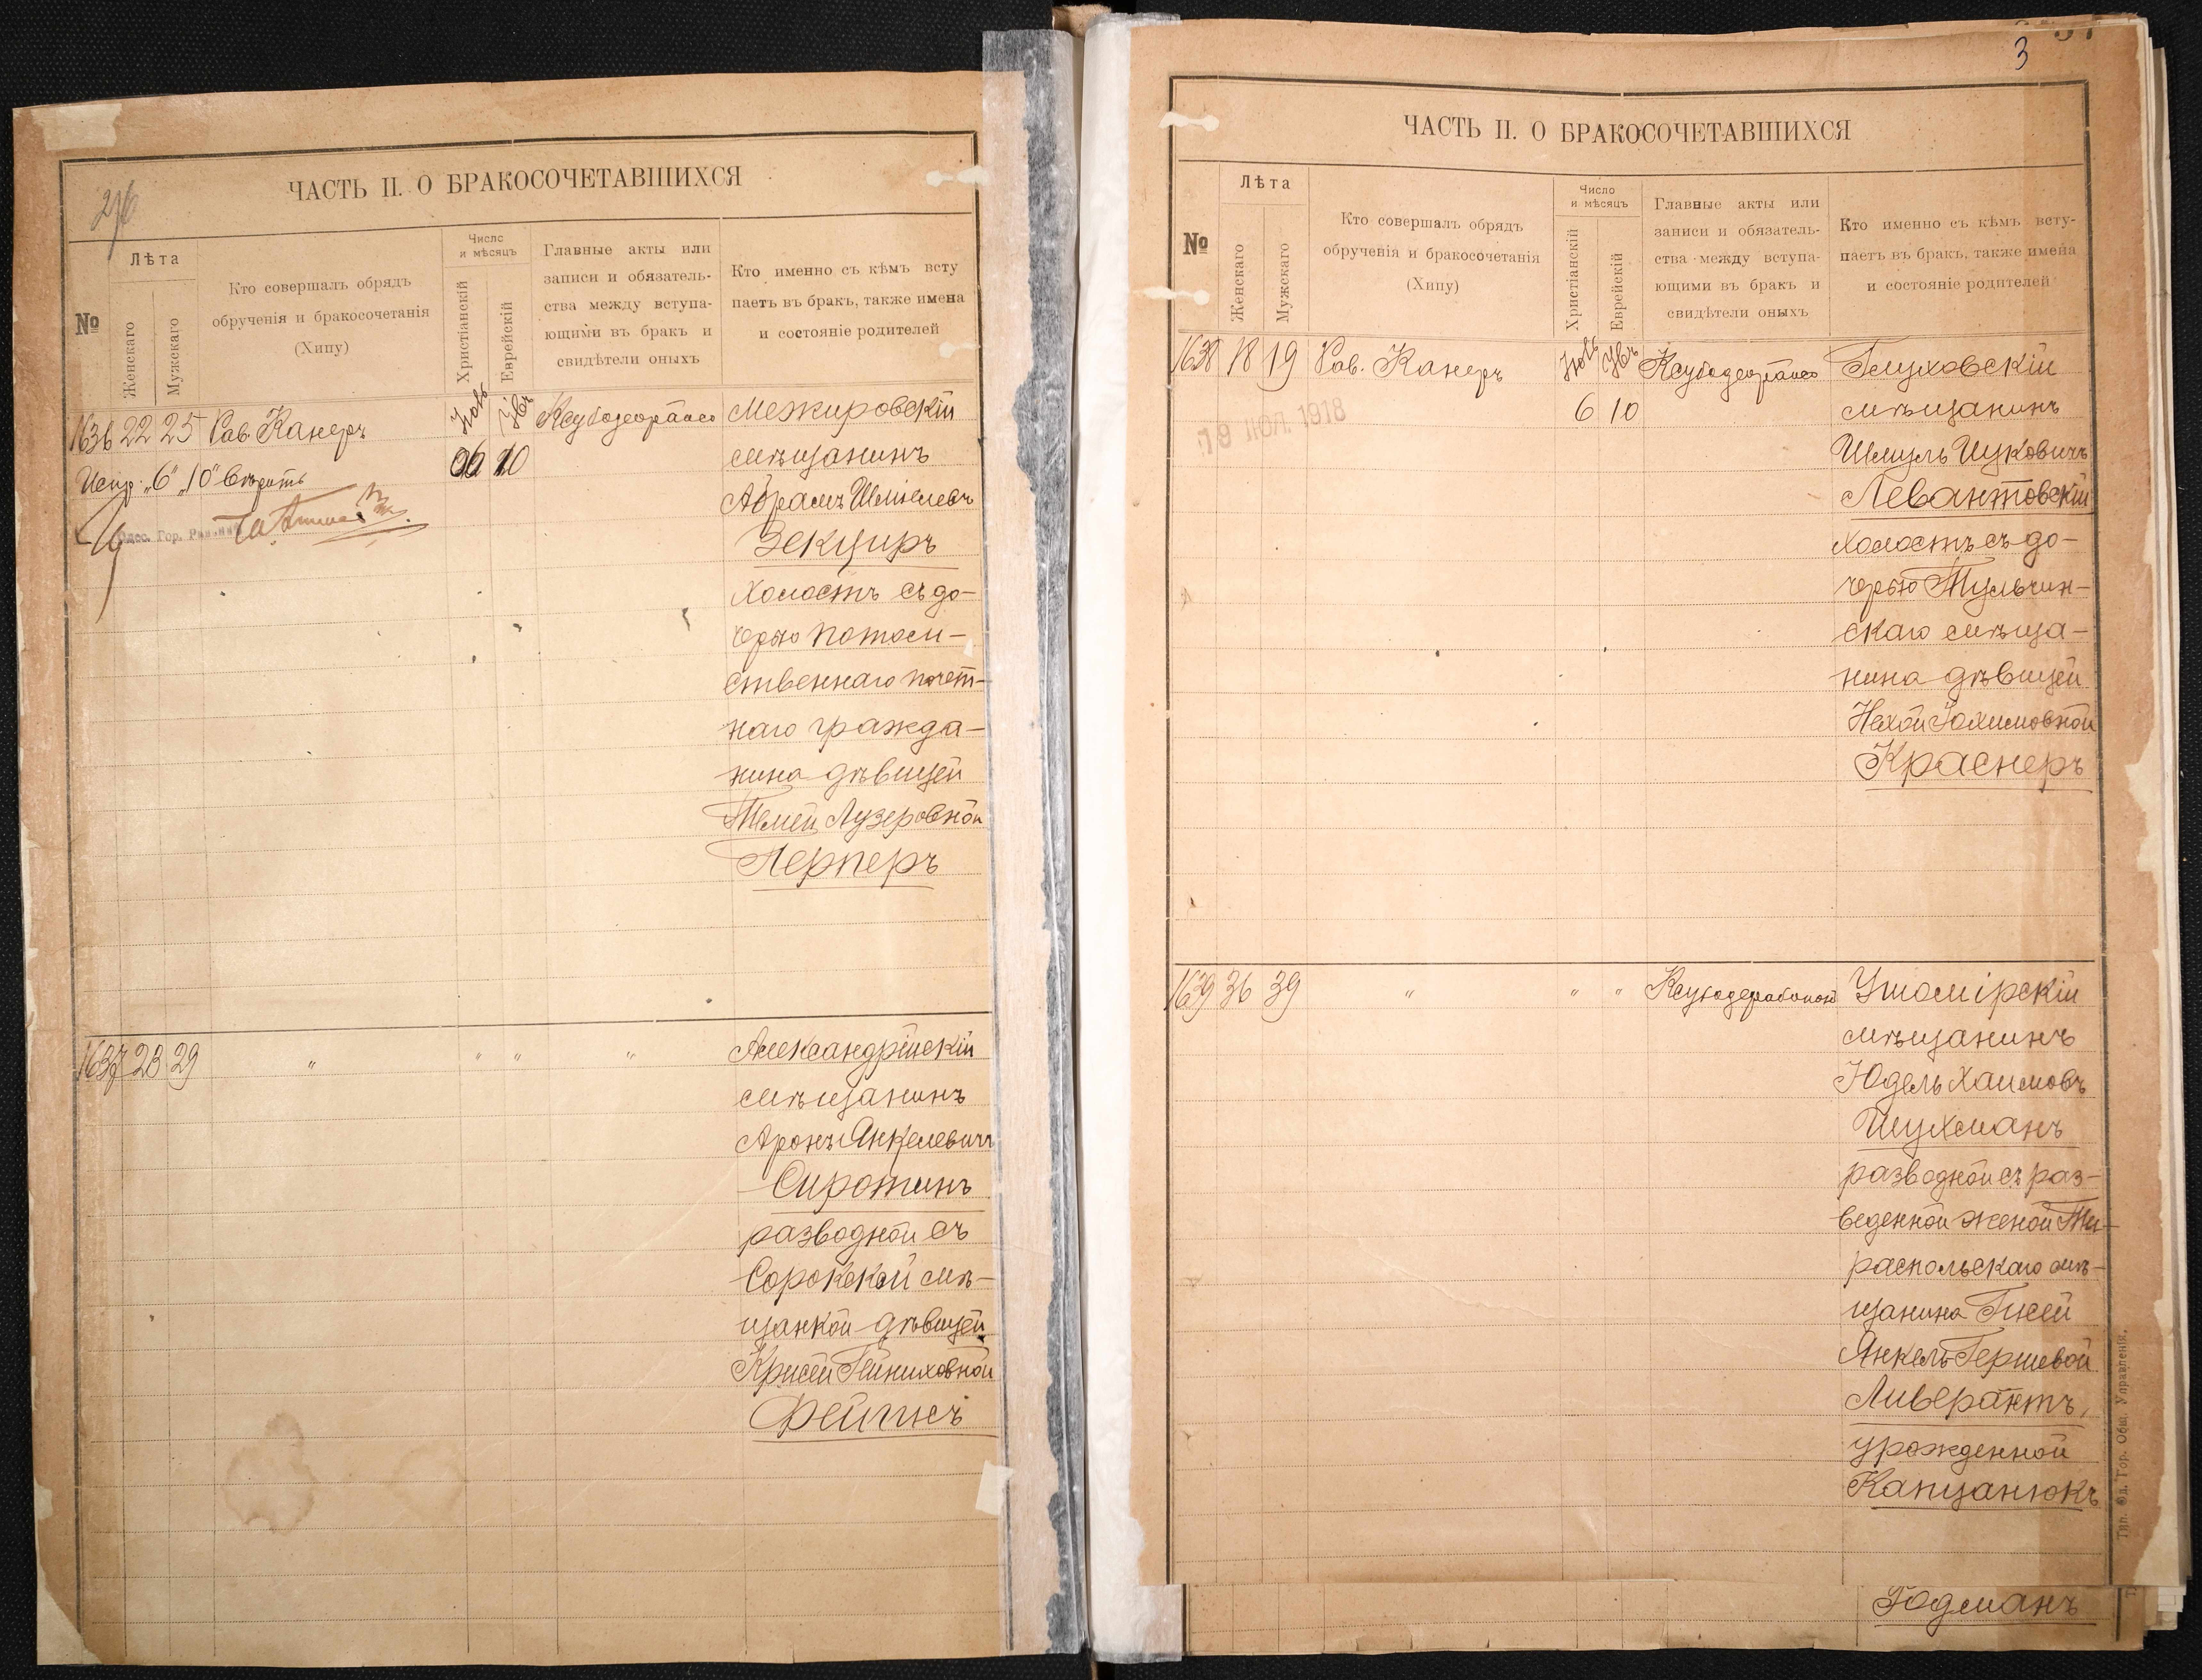 296
ЧАСТЬ II. О БРАКОСОЧЕТАВШИХСЯ
№
Лѣта
Женскаго
Мужскаго
Кто совершалъ обрядъ
обрученія и бракосочетанія
(Хипу)
Число
и мѣсяцъ
Христіанскій
Еврейскій
Главные акты или
записи и обязатель-
ства между вступа-
ющими въ бракъ и
свидѣтели оныхъ
Кто именно съ кѣмъ всту
паетъ въ бракъ, также имена
и состояніе родителей
1636 22 25 Рав. Канеръ
6 10
Испр. „6" „10" вѣрить
Одес. Гор. Раввинъ
Межировскій
мѣщанинъ
Абрамъ Шмилевъ
Зекциръ
холостъ съ до-
черью потом-
ственнаго почет-
наго гражда-
нина дѣвицей
Темей Лузеровной
Лернеръ
1637 23 29 " " " "
Александрійскій
мѣщанинъ
Аронъ Янкелевичъ
Сиротинъ
разводной съ
Сорокской мѣ-
щанкой дѣвицей
Крисей Гейниховной
Фейгисъ
3
ЧАСТЬ II. О БРАКОСОЧЕТАВШИХСЯ
№
Лѣта
Женскаго
Мужскаго
Кто совершалъ обрядъ
обрученія и бракосочетанія
(Хипу)
Число
и мѣсяцъ
Христіанскій
Еврейскій
Главные акты или
записи и обязатель-
ства между вступа-
ющими въ бракъ и
свидѣтели оныхъ
Кто именно съ кѣмъ всту-
паетъ въ бракъ, также имена
и состояніе родителей
1638 18 19 Рав. Канеръ
6 10
19 ІЮЛ. 1918
Глуховскій
мѣщанинъ
Шмуль Ицковичъ
Левантовскій
холостъ съ до-
черью Тульчин-
скаго мѣща-
нина дѣвицей
Нехой Іохимовной
Краснеръ
1639 36 39 " " "
Ушомірскій
мѣщанинъ
Юдель Хаимовъ
Шухманъ
разводной съ раз-
веденной женой Ти-
распольскаго мѣ-
щанина Гисей
Янкель-Гершевой
Ливерантъ,
урожденной
Капцанюкъ
Тип. Од. Гор. Общ. Управленія.
Годманъ